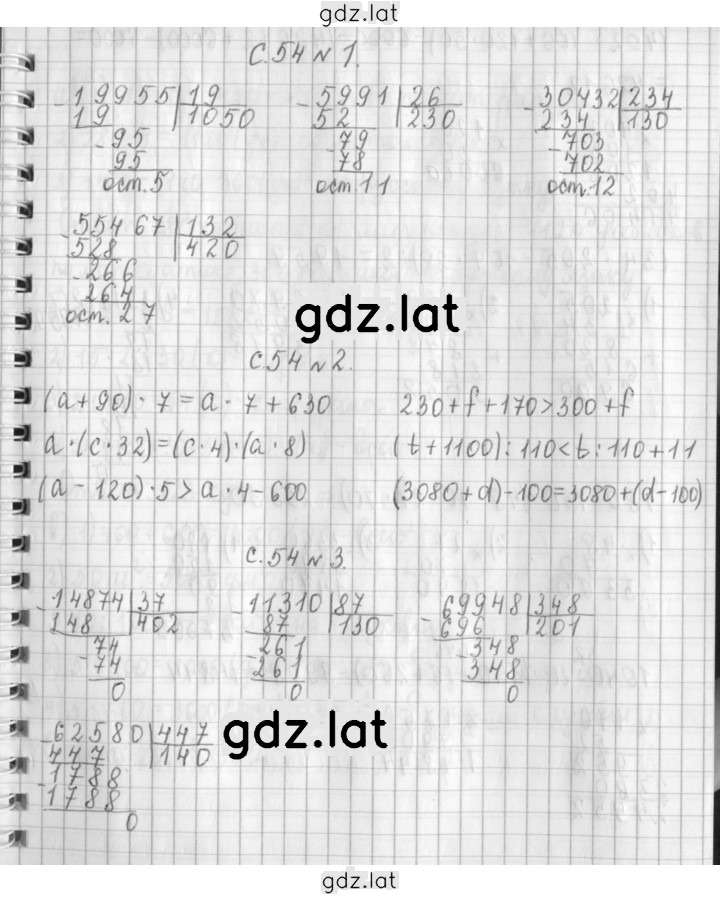 gdz.lat
С.54 № 1.
19955 | 19
19 | 1050
- 95
95
ост. 5
- 5991 | 26
52 | 230
- 79
78
ост 11
- 30432 | 234
234 | 130
- 703
702
ост. 12
- 55467 | 132
528 | 420
- 266
264
ост. 27
gdz.lat
С.54 № 2.
(a + 90) · 7 = a · 7 + 630
230 + f + 170 > 300 + f
a · (c · 32) = (c · 4) · (a · 8)
(t + 1100) : 110 < t : 110 + 11
(a - 120) · 5 > a · 4 - 600
(3080 + d) - 100 = 3080 + (d - 100)
С.54 № 3.
- 14874 | 37
148 | 402
- 74
74
0
- 11310 | 87
87 | 130
- 261
261
0
- 69948 | 348
696 | 201
- 348
348
0
- 62580 | 447
447 | 140
- 1788
1788
0
gdz.lat
gdz.lat